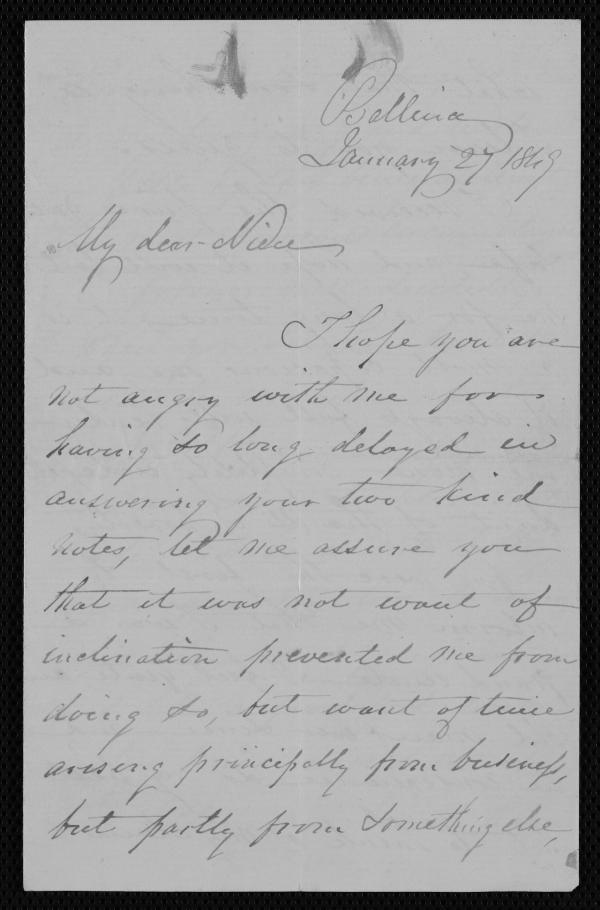 Ballina
January 27 1869
My dear Niece
I hope you are
not angry with me for
having so long delayed in
answering your two kind
notes, let me assure you
that it was not want of
inclination prevented me from
doing so, but want of time
arising principally from business,
but partly from something else,